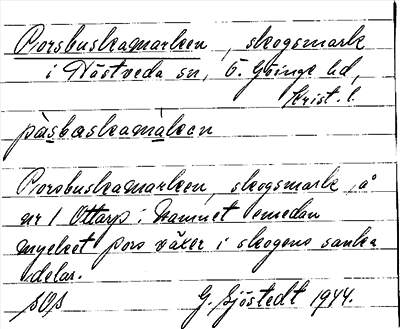 Porsbuskamarken, skogsmark
i Hästveda sn, Ö. Göinge hd,
Krist. l.
pàsbuskamàrken
Porsbuskamarken, skogsmark å
nr 1 Ottarp: Namnet emedan
mycket pors växer i skogens sanka
delar.
G. Sjöstedt 1944.